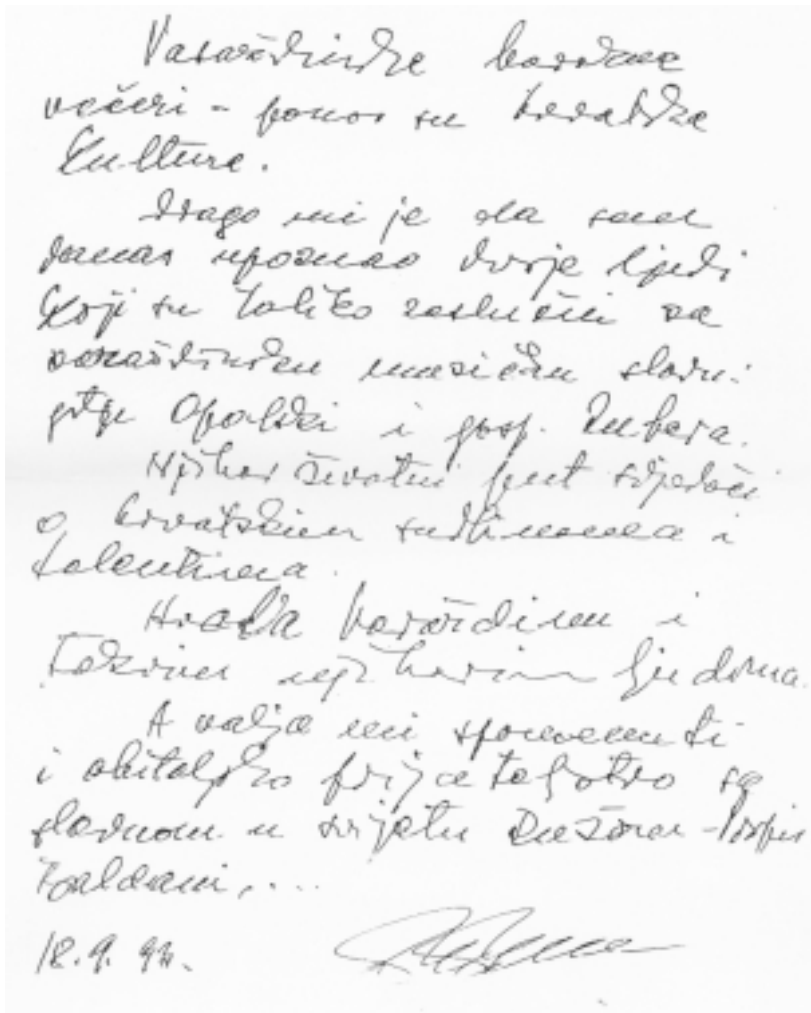 Varaždinske barokne
večeri - ponos su hrvatske
kulture.
Drago mi je da sam
danas upoznao dvoje ljudi
koji su toliko zaslužni za
varaždinsku muzičku slavu:
gđe Opolski i gosp. Zubera.
Njihov životni put svjedoči
o hrvatskim sudbinama i
talentima.
Hvala Varaždinu i
takvim njihovim ljudima.
A valja mi spomenuti
i obiteljsko prijateljstvo sa
slavnom u svijetu Ružom Pospiš
Baldani,...
18.9.94.